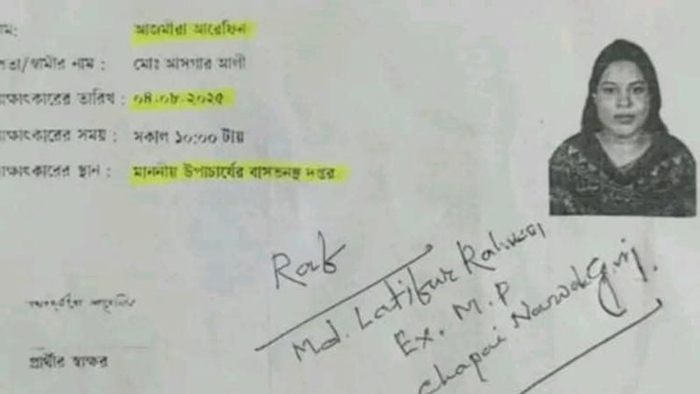 াম: আজমীরা আরেফিন
িতা/স্বামীর নাম : মোঃ আসগার আলী
াক্ষাৎকারের তারিখ : ০৪.০৮.২০২৫
াক্ষাৎকারের সময় : সকাল ১০:০০ টায়
াক্ষাৎকারের স্থান : মাননীয় উপাচার্যের বাসভনস্থ দপ্তর
Md. Latifur Rahman
Ex. M.P
Chapai Nawabgonj.
প্রার্থীর স্বাক্ষর